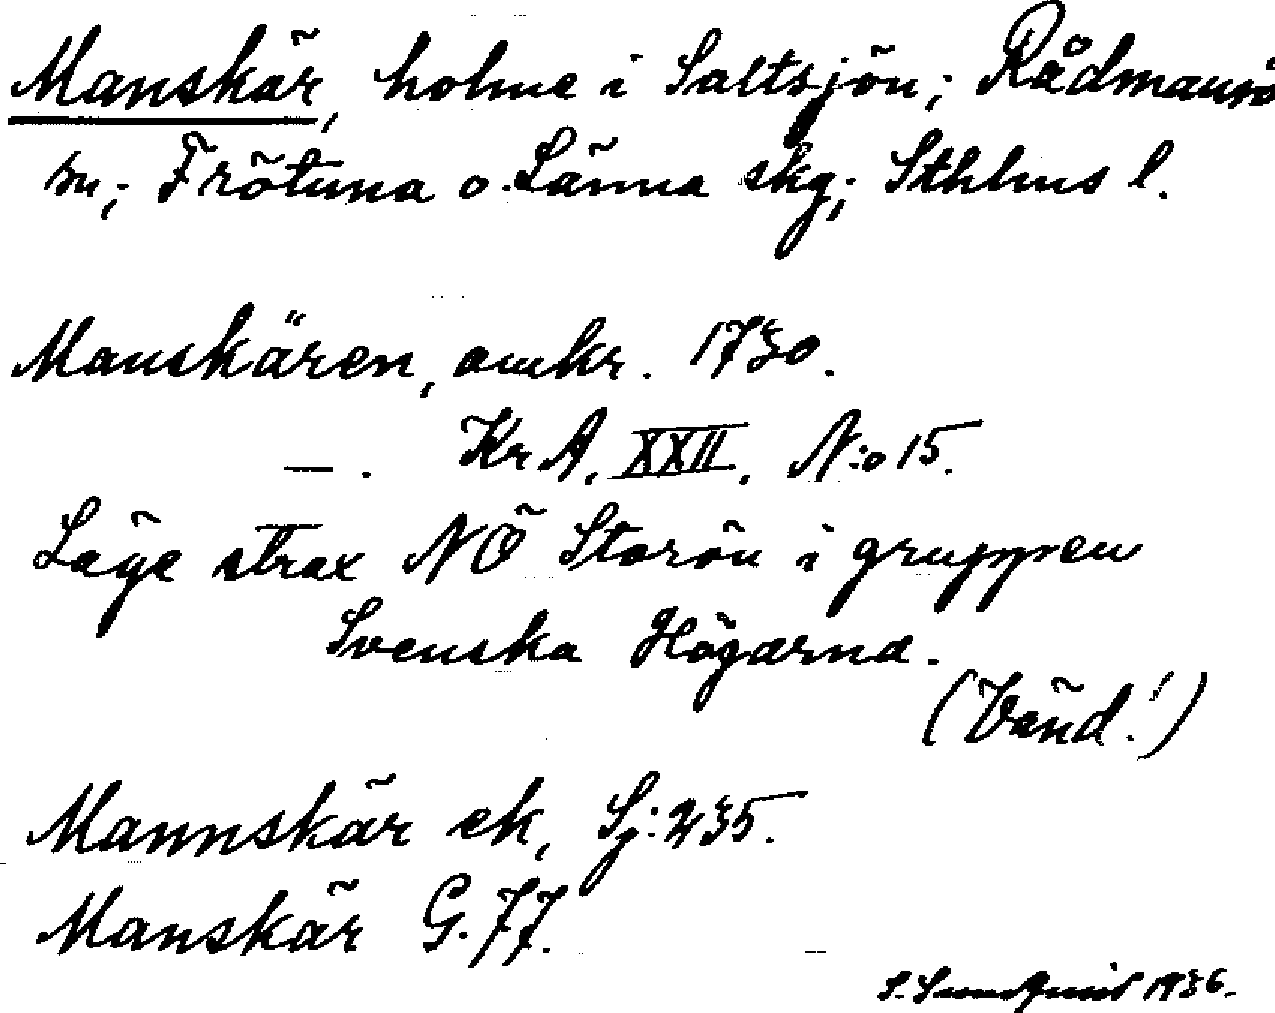 Manskär, holme i Saltsjön; Rådmansö
sn; Frötuna o. Länna skg; Sthlms l.
Manskären, omkr. 1730.
— . Kr A. XXII. N:o 15.
Läge strax NÖ Storön i gruppen
Svenska Högarna.
(Vänd!)
Mannskär ek, Sj: 235.
Manskär G. 77.
S. Sundquist 1936.